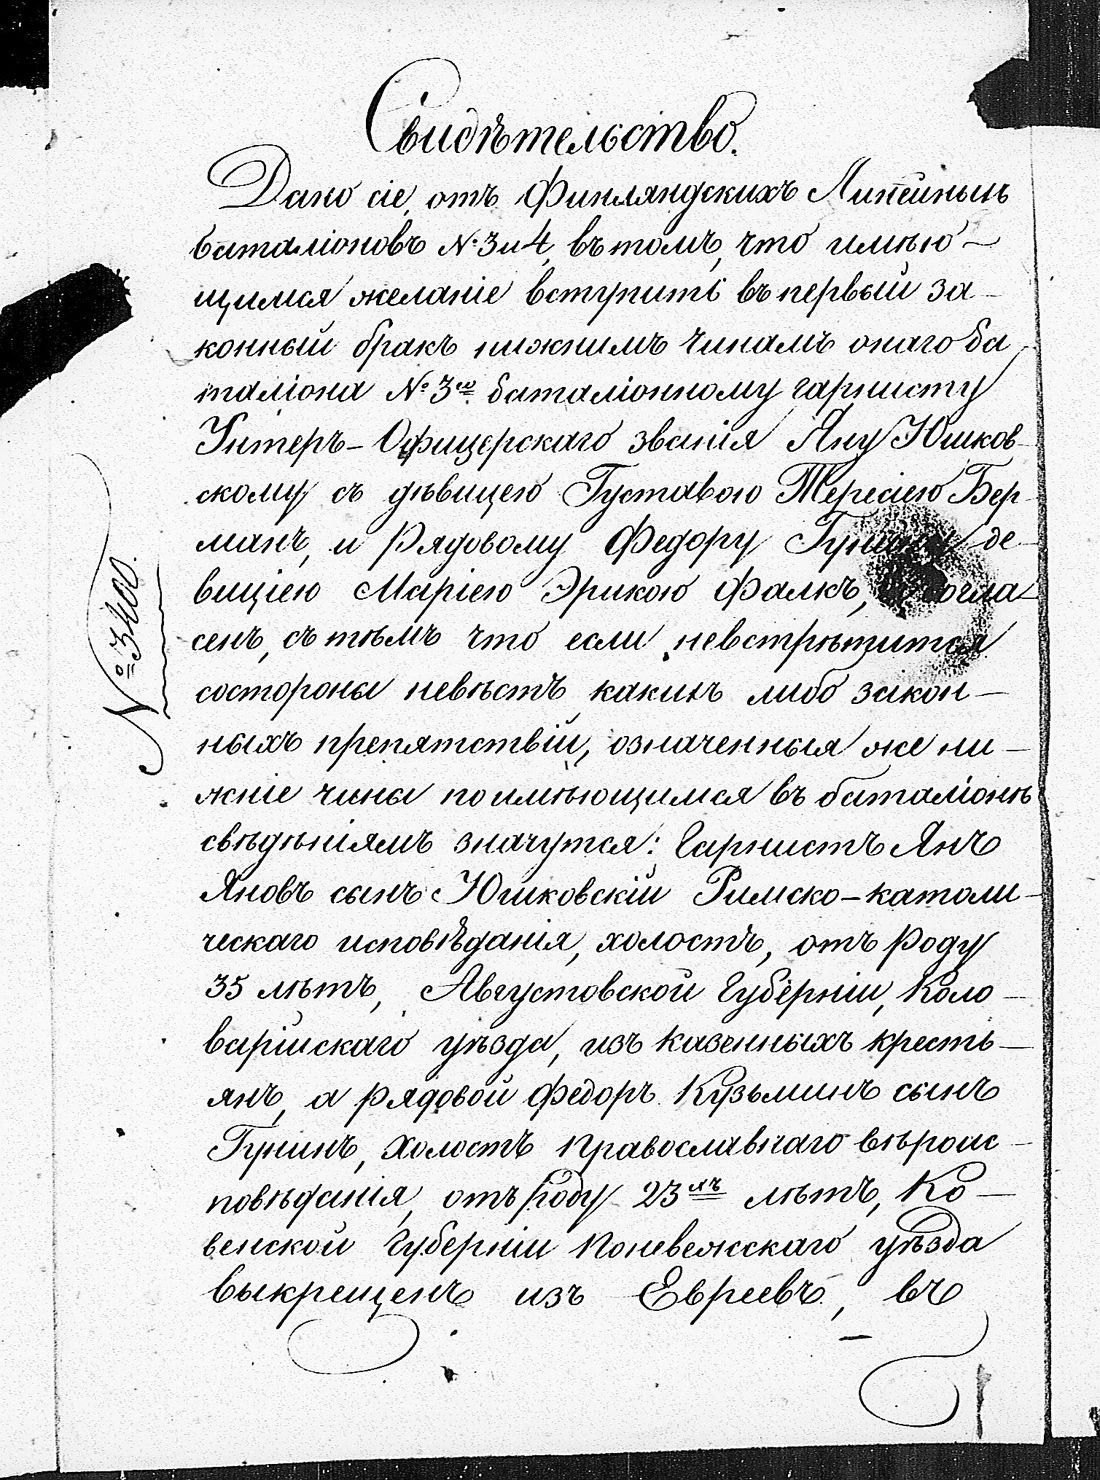 Свидѣтельство.
Дано сіе, отъ Финляндскихъ Линейныхъ
баталіоновъ № 3 и 4, въ томъ, что имѣю-
щимся желаніе вступить въ первый за-
конный бракъ нижнимъ чинамъ онаго ба
таліона № 3го баталіонному горнисту
Унтеръ-Офицерскаго званія Яну Юшков-
скому съ дѣвицею Густавою Терезіею Бер-
манъ, и рядовому Федору де-
вицею Маріею Эрикою Фалкъ, согла
сенъ, съ тѣмъ что если невстрѣтится
состороны невѣстъ какихъ либо закон-
ныхъ препятствій, означенныя же ни-
жніе чины по имѣющимся въ баталіонѣ
свѣдѣніямъ значутся: Горнистъ Янъ
Яновъ сынъ Юшковскій Римско-католи-
ческаго исповѣданія, холостъ, отъ роду
35 лѣтъ, Августовской Губерніи, Коло-
варійскаго уѣзда, изъ казенныхъ кресть-
янъ, а рядовой Федоръ Кузьминъ сынъ
Гунинъ, холостъ православнаго вѣроис-
повѣданія, отъ роду 23хъ лѣтъ, Ко-
венской Губерніи Поневежскаго уѣзда
выкрещенъ изъ Евреевъ, въ
№ 3400.